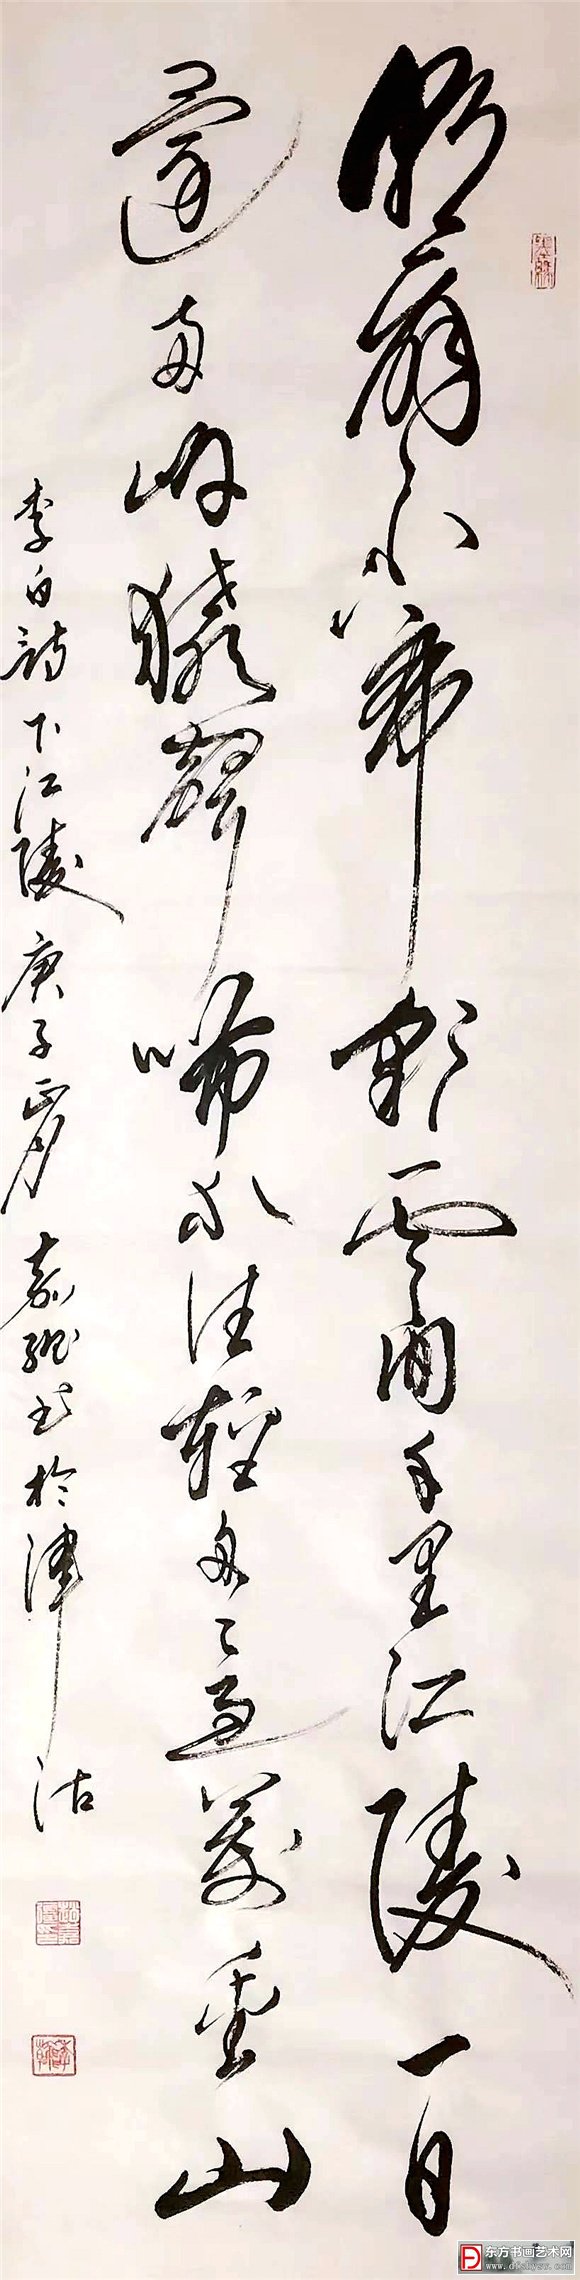 朝辭白帝彩雲間千里江陵一日
還兩岸猿聲啼不住輕舟已過萬重山
李白詩下江陵庚子正月嘉书於津沽
东方书画艺术网